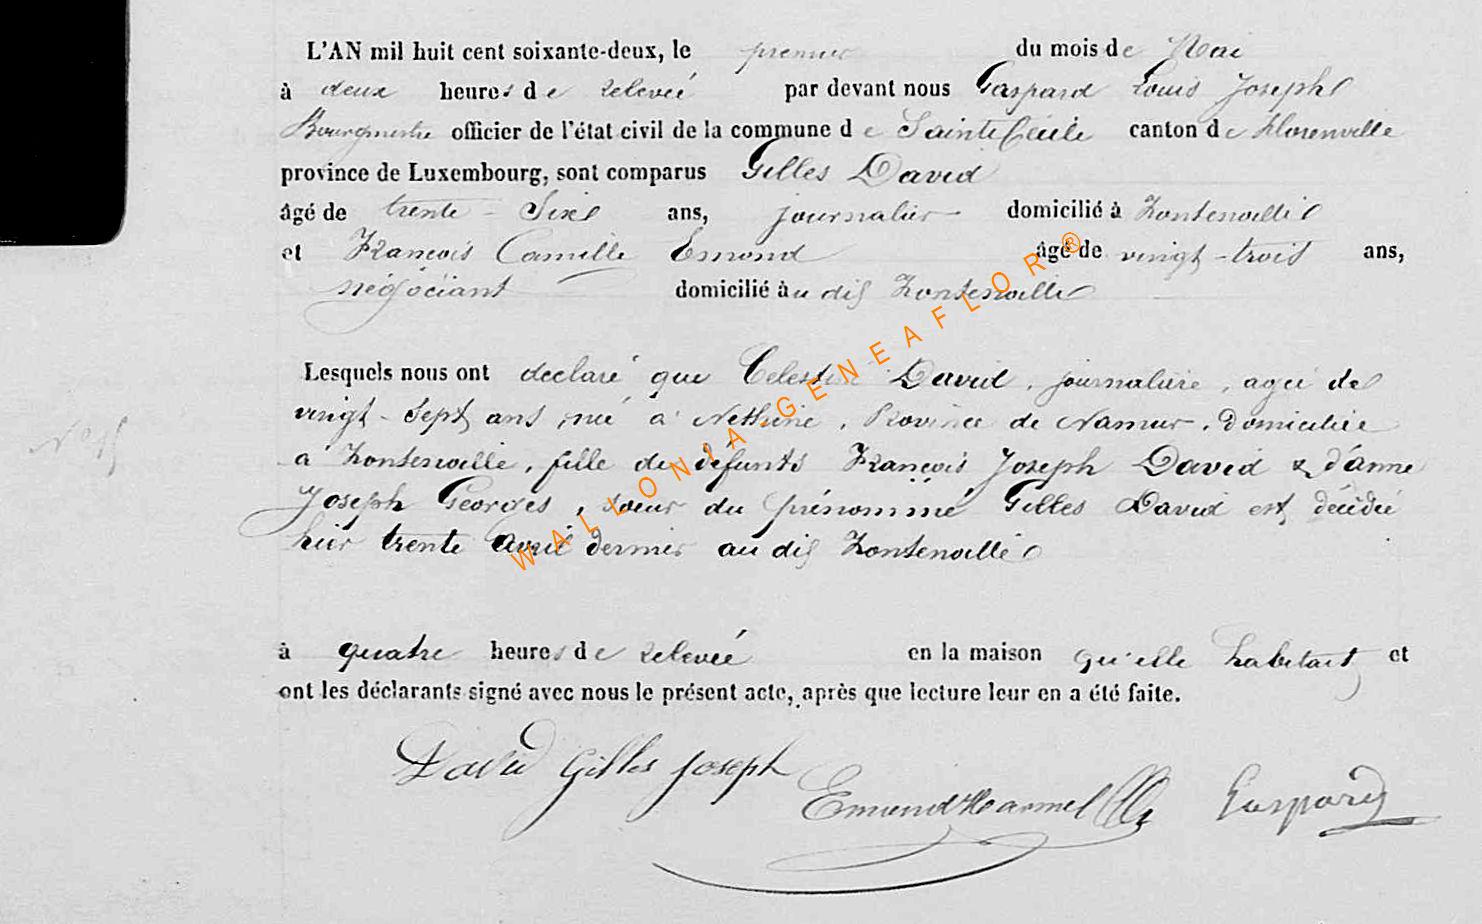 L'AN mil huit cent soixante-deux, le premier du mois de Mai
à deux heures de relevée par devant nous Gaspard Louis Joseph
Bourgmestre officier de l'état civil de la commune de Sainte Cécile canton de Florenville
province de Luxembourg, sont comparus Gilles David
âgé de trente-Six ans, journalier domicilié à Fontenoille
et François Camille Emond âgé de vingt-trois ans,
négociant domicilié àu dit Fontenoille
Lesquels nous ont declaré que Celestine David, journalière, agée de
vingt-Sept ans, née à Nethine, Province de Namur, domiciliée
à Fontenoille, fille de défunts François Joseph David & d'anne
Joseph Georges, soeur du prénommé Gilles David est décédée
hier trente Avril dernier au dit Fontenoille
à quatre heures de relevée en la maison qu'elle habitait et
ont les déclarants signé avec nous le présent acte, après que lecture leur en a été faite.
David Gilles Joseph
Emond Harmel Gaspard
WALLONIA GENEAFLOR®